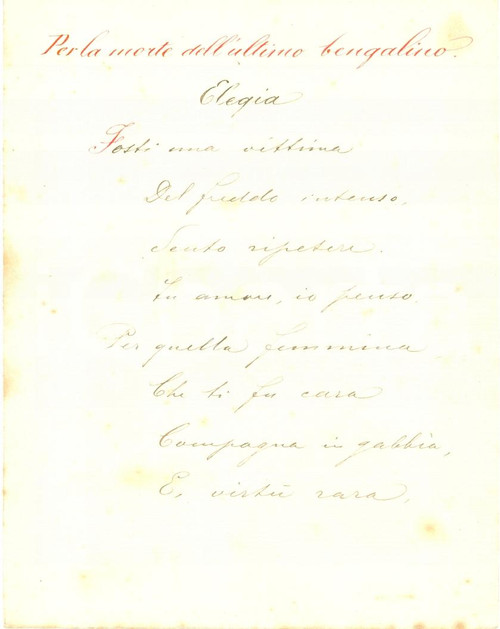 Per la morte dell'ultimo bengalino.
Elegia
Fosti una vittima
Del freddo intenso,
Sento ripetere.
Fu amore, io penso.
Per quella femmina
Che ti fu cara
Compagna in gabbia,
E, virtù rara,